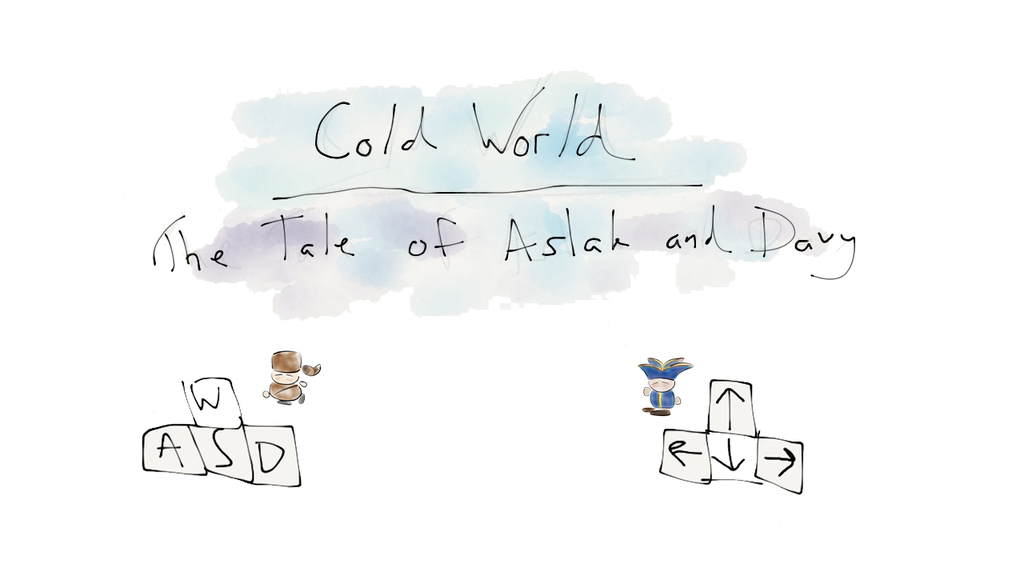 Cold World
The Tale of Aslak and Davy
W
A S D
↑
← ↓ →